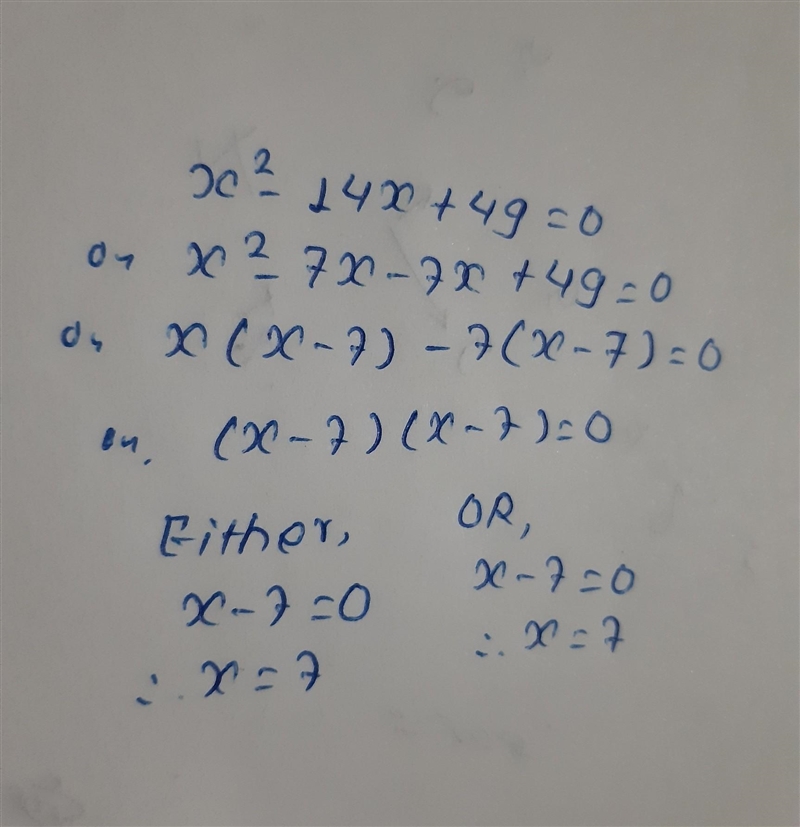 x² - 14x + 49 = 0
or x² - 7x - 7x + 49 = 0
or x (x - 7) - 7 (x - 7) = 0
or, (x - 7) (x - 7) = 0
Either, OR,
x - 7 = 0 x - 7 = 0
∴ x = 7 ∴ x = 7